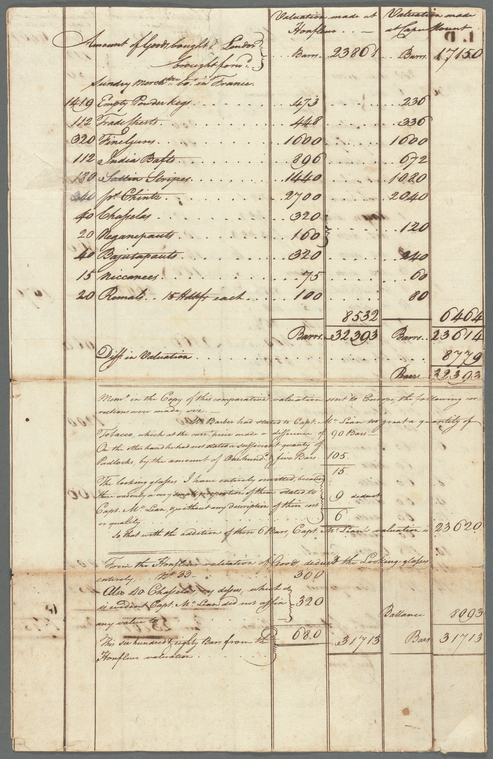 Valuation made at Honfleur
Valuation made at Cape Mount
Amount of Goods bought in London
brought forwd. Barrs 23861 Barrs 17150
Sundry Merchze. bot. in France
1419 Empty Powder Kegs 473 236
112 Trade Shirts 448 336
320 Fine Guns 1600 1600
112 India Bafts 896 672
120 Sattin Stripes 1440 1080
340 ps. Chintz 2700 2040
40 Chasselas 320
20 Neganepauts 160 120
40 Bajutapauts 320 240
15 Niccanees 75 60
20 Romals 15 Hdkfs. each 100 80
8532 6464
Barrs 32393 Barrs 23614
Diffe. in Valuation 8779
Bars 32393
Memo. in the Copy of this comparative valuation sent to Europe, the following corrections were made, vizt.
Mr. Barber had stated to Capt. Mc.Lean too great a quantity of
Tobacco, which at the price made a difference of 90 Bars
On the other hand he had not stated a sufficient quanty. of
Padlocks, by the amount of One hundd. & five Bars 105
15
The looking glasses I have entirely omitted, because
there was only a of them stated to
Capt. Mc.Lean, & without any description of their cost
or quality 9 deduct
6
So that with the addition of these 6 Bars, Capt. Mc.Lean's valuation is 23620
From the Honfleur valuation of Goods deduct the Looking glasses
entirely 300
Also 40 Chasselas as above, which
Capt. Mc.Lean did not affix
any value to 320
Ballance 8093
The six hundred & eighty Bars from the
Honfleur valuation 680 31713 Bars 31713